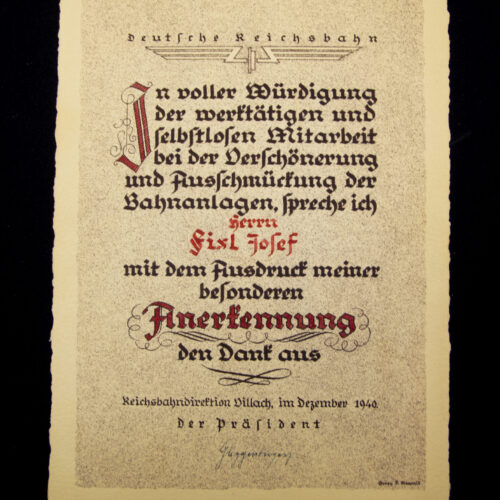 Deutsche Reichsbahn
In voller Würdigung
der werktätigen und
selbstlosen Mitarbeit
bei der Verschönerung
und Ausschmückung der
Bahnanlagen, spreche ich
Herrn
Fixl Josef
mit dem Ausdruck meiner
besonderen
Anerkennung
den Dank aus
Reichsbahndirektion Villach, im Dezember 1940.
der Präsident